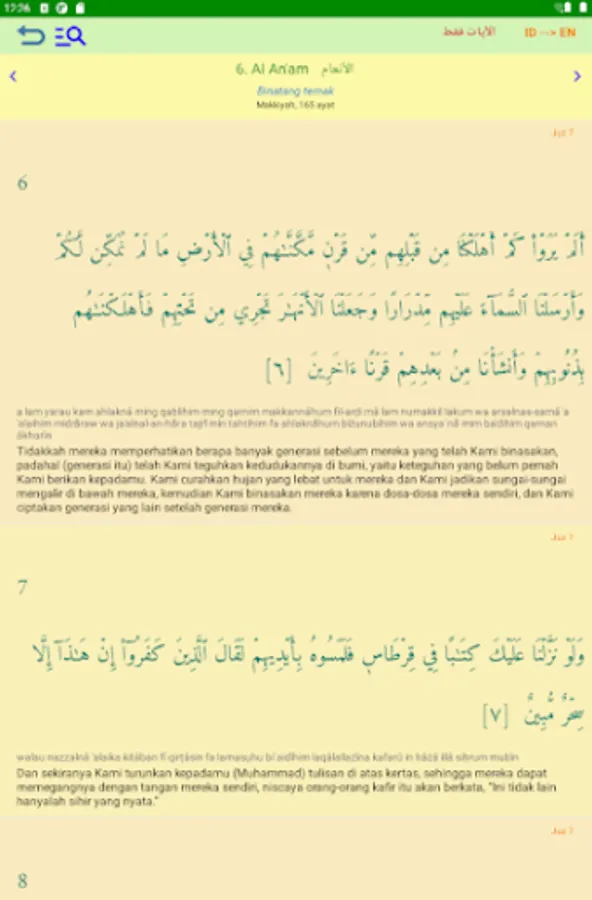 12:26
الآيات فقط ID --> EN
6. Al An'am الأنعام
Binatang ternak
Makkiyah, 165 ayat
Juz 7
6
أَلَمْ يَرَوْا۟ كَمْ أَهْلَكْنَا مِن قَبْلِهِم مِّن قَرْنٍ مَّكَّنَّـٰهُمْ فِي ٱلْأَرْضِ مَا لَمْ نُمَكِّن لَّكُمْ
وَأَرْسَلْنَا ٱلسَّمَآءَ عَلَيْهِم مِّدْرَارًا وَجَعَلْنَا ٱلْأَنْهَـٰرَ تَجْرِي مِن تَحْتِهِمْ فَأَهْلَكْنَـٰهُم
بِذُنُوبِهِمْ وَأَنشَأْنَا مِنۢ بَعْدِهِمْ قَرْنًا ءَاخَرِينَ [٦]
a lam yarau kam ahlaknā ming qablihim ming qarnim makkannāhum fil-arḍi mā lam numakkil lakum wa arsalnas-samā`a
'alaihim midrāraw wa ja'alnal-an-hāra tajrī min taḥtihim fa ahlaknāhum biżunụbihim wa ansya`nā mim ba'dihim qarnan
ākharīn
Tidakkah mereka memperhatikan berapa banyak generasi sebelum mereka yang telah Kami binasakan,
padahal (generasi itu) telah Kami teguhkan kedudukannya di bumi, yaitu keteguhan yang belum pernah
Kami berikan kepadamu. Kami curahkan hujan yang lebat untuk mereka dan Kami jadikan sungai-sungai
mengalir di bawah mereka, kemudian Kami binasakan mereka karena dosa-dosa mereka sendiri, dan Kami
ciptakan generasi yang lain setelah generasi mereka.
Juz 7
7
وَلَوْ نَزَّلْنَا عَلَيْكَ كِتَـٰبًا فِي قِرْطَاسٍ فَلَمَسُوهُ بِأَيْدِيهِمْ لَقَالَ ٱلَّذِينَ كَفَرُوٓا۟ إِنْ هَـٰذَآ إِلَّا
سِحْرٌ مُّبِينٌ [٧]
walau nazzalnā 'alaika kitāban fī qirṭāsin fa lamasụhu bi`aidīhim laqālallażīna kafarū in hāżā illā siḥrum mubīn
Dan sekiranya Kami turunkan kepadamu (Muhammad) tulisan di atas kertas, sehingga mereka dapat
memegangnya dengan tangan mereka sendiri, niscaya orang-orang kafir itu akan berkata, "Ini tidak lain
hanyalah sihir yang nyata."
Juz 7
8